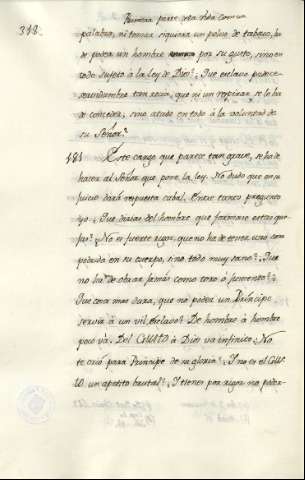 318.
Primera parte
palabra, ni tomar siquiera un polvo de tabaco, ha
de poder un hombre por su gusto, sino en
todo sujeto à la Ley de Dios? Que esclavo padece
servidumbre tan recia, que ni un respirar se le ha
de conceder, sino atado en todo à la voluntad de
su Señor?
181 Este cargo que parece tan grave, se ha de
hacer al Señor que pone la ley. No dudo que en su
juicio dará respuesta cabal. Entre tanto pregunto
yo. Que dirias del hombre que formare estas que
jas? No es fuerte rigor, que no ha de tener uno
en su cuerpo, sino todo muy sano? Que
no ha de obrar jamás como toro ò jumento?
Que cosa mas dura, que no poder un Principe
servir à un vil Esclavo? De hombre à hombre
poco và. Del à Dios va infinito. No
te crió para Principe de su gloria? Y no es el
un apetito brutal? Y tienes por rigor no poder